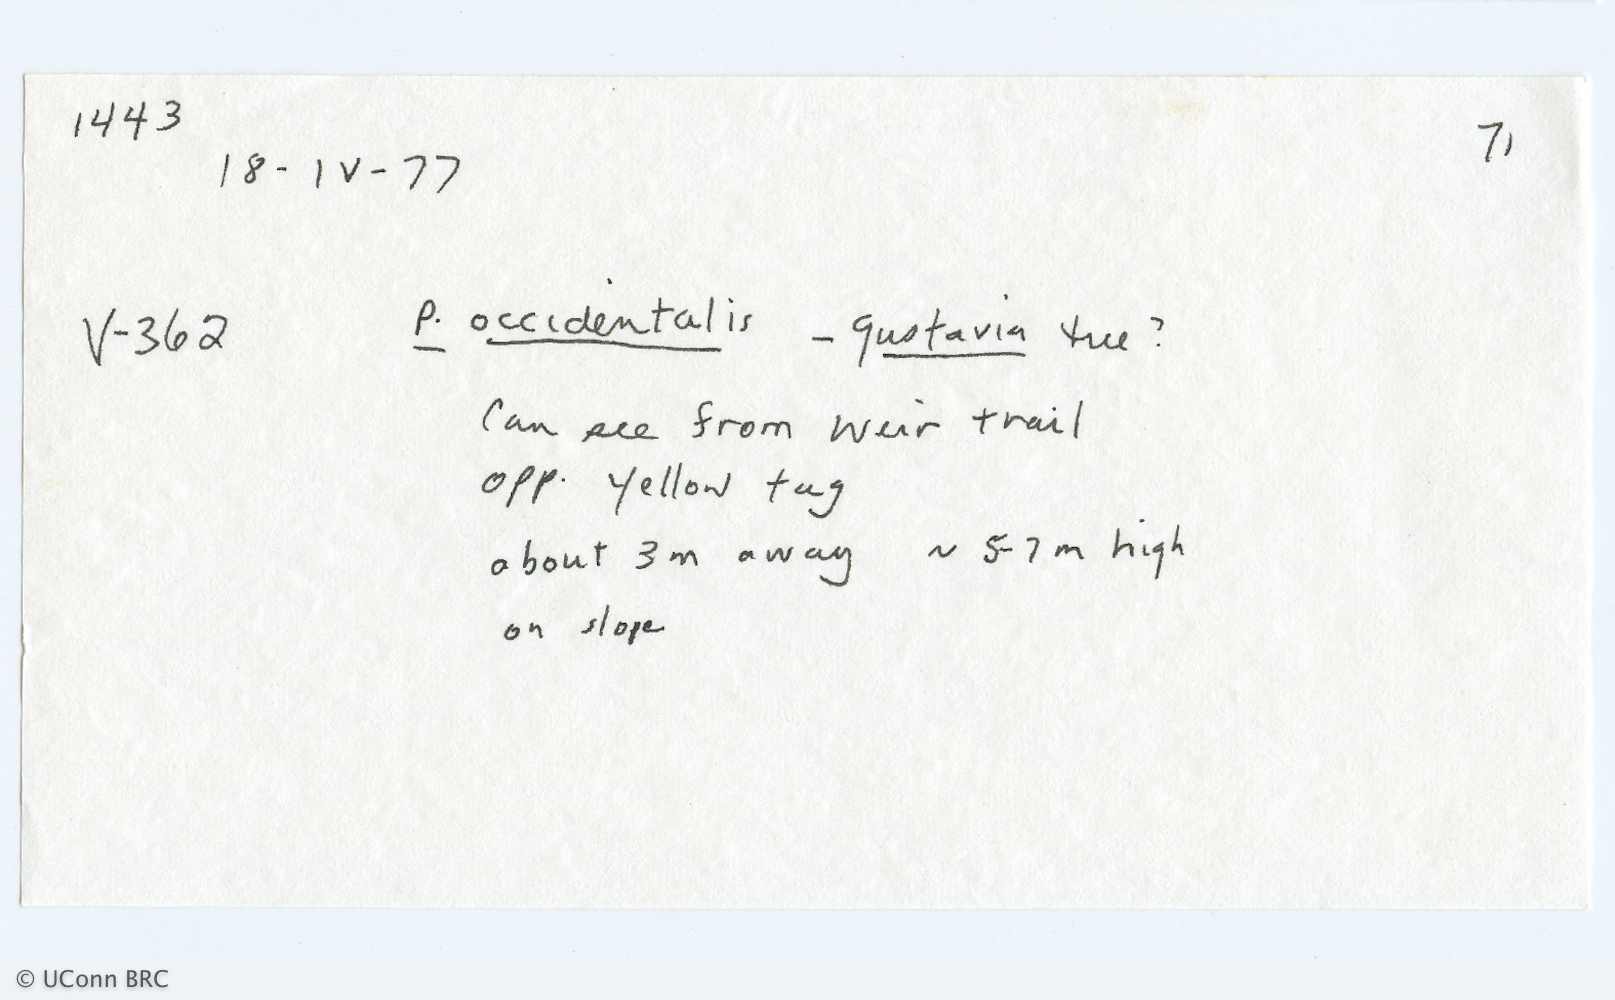 1443
71
18-IV-77
V-362 P. occidentalis - Gustavia tree?
Can see from Weir trail
opp. yellow tag
about 3m away ~ 5-7m high
on slope
© UConn BRC